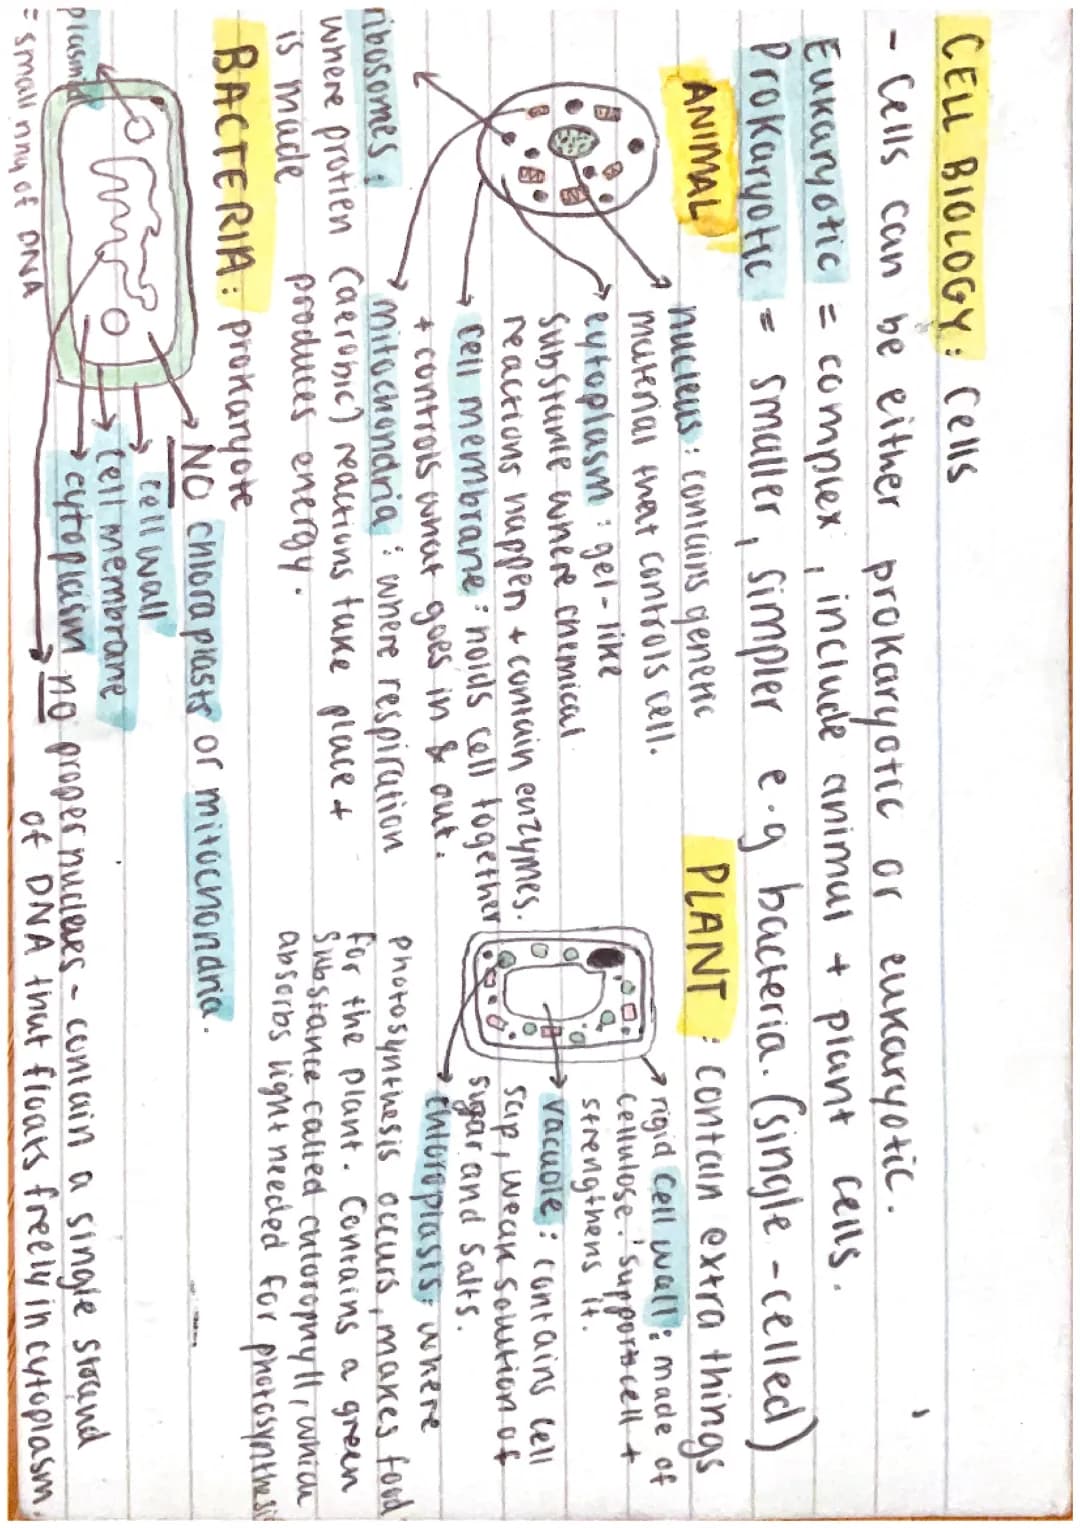 CELL BIOLOGY: Cells
- Cells can be either prokaryotic or eukaryotic.
Eukaryotic = complex, include animal + plant cells.
Prokaryotic = smaller, simpler e.g bacteria. (single-celled)
ANIMAL
nucleus: contains genetic
material that controls cell.
cytoplasm: gel-like
substance where chemical
reactions happen + contain enzymes.
cell membrane: holds cell together
+ controls what goes in & out.
mitochondria: where respiration
(aerobic) reactions take place +
produces energy.
ribosomes:
where protien
is made
PLANT: contain extra things
rigid cell wall: made of
cellulose. Supports cell +
strengthens it.
vacuole: contains cell
sap, weak solution of
sugar and salts.
chloroplasts: where
photosynthesis occurs, makes food
for the plant. Contains a green
substance called chlorophyll, which
absorbs light needed for photosynthesis
BACTERIA: prokaryote
NO chloraplasts or mitochondria.
cell wall
cell membrane
cytoplasm
no proper nucleus - contain a single strand
of DNA that floats freely in cytoplasm.
plasmid
= small ring of DNA